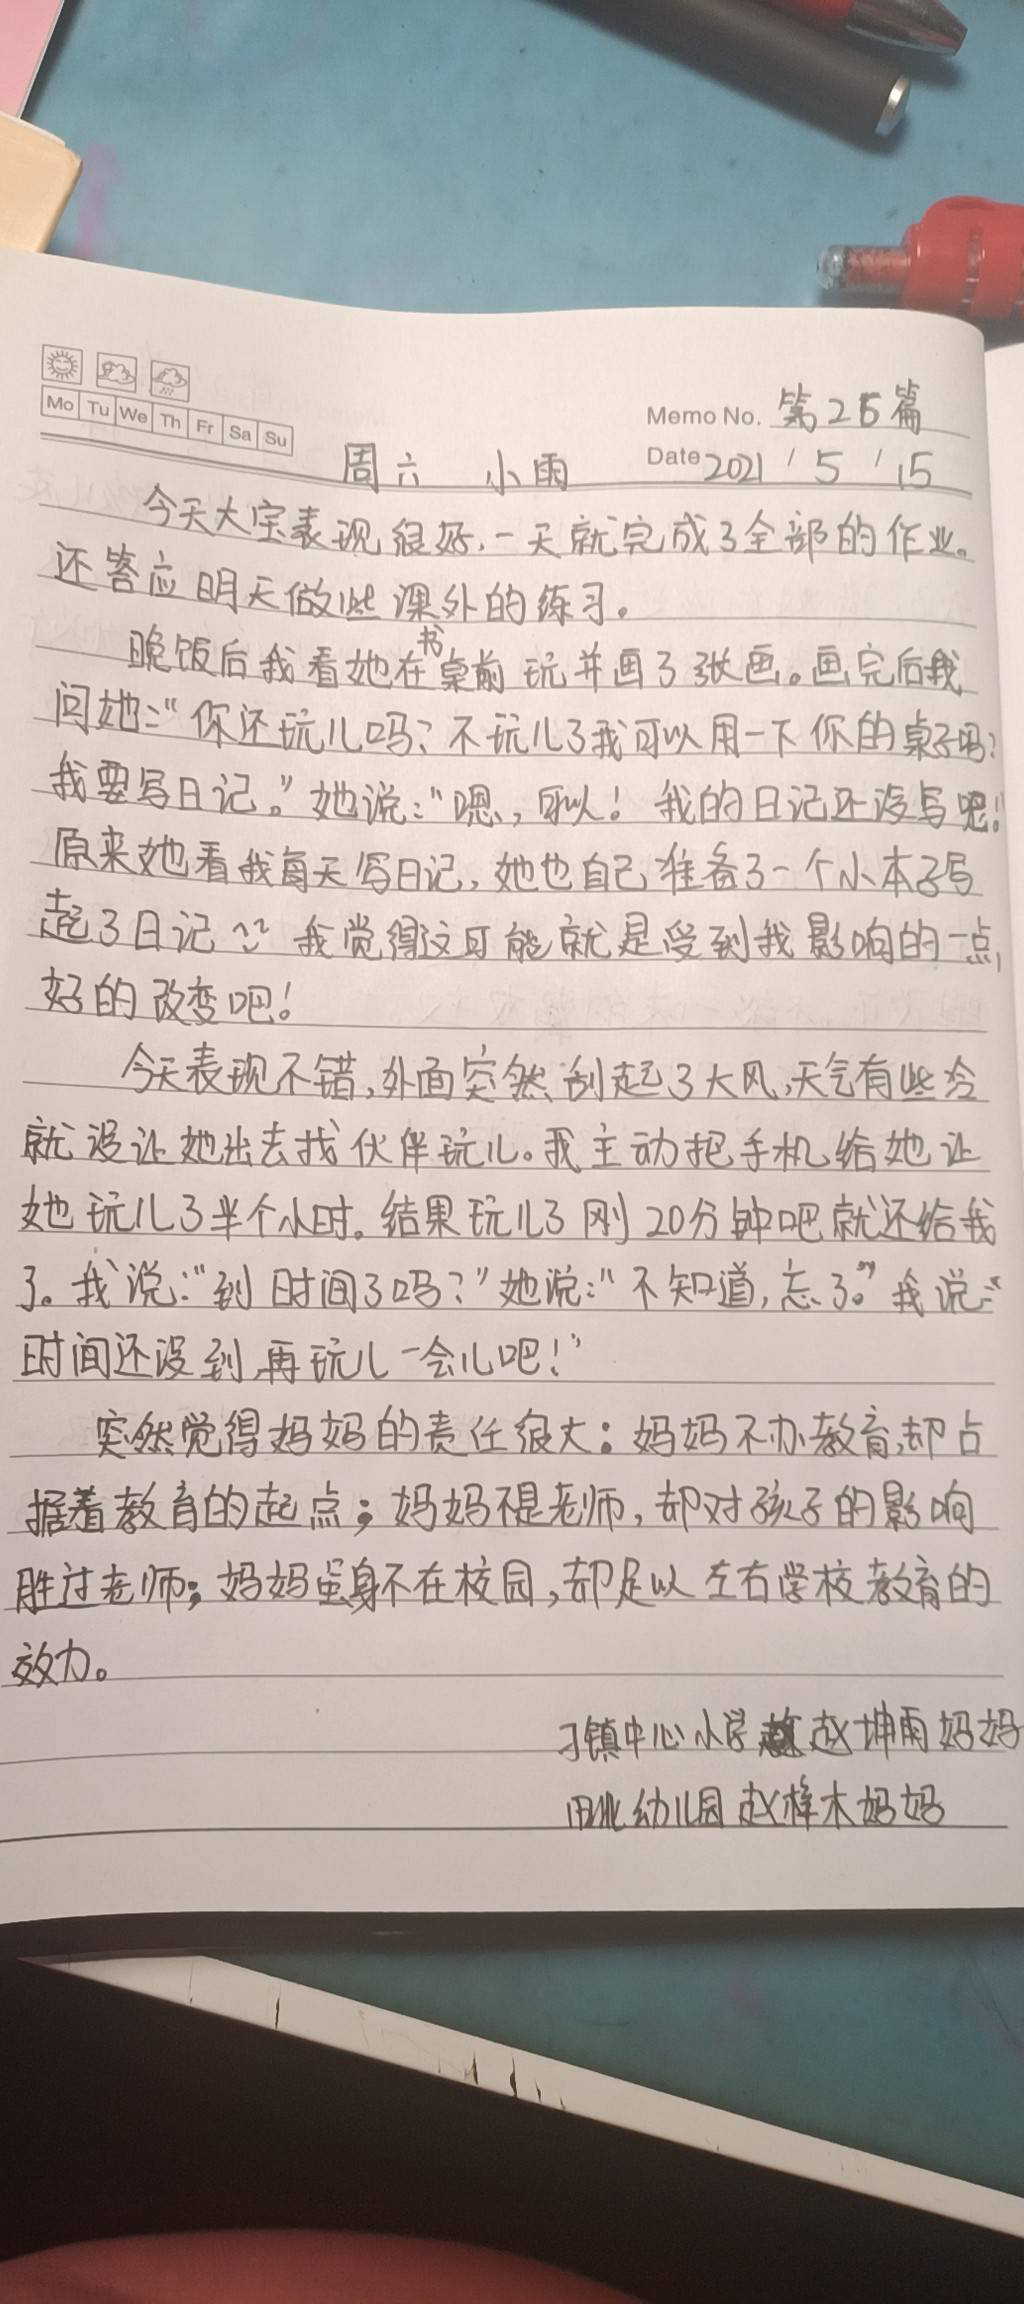 Mo Tu We Th Fr Sa Su
Memo No. 第25篇
周六 小雨 Date 2021 / 5 / 15
今天大宝表现很好,一天就完成了全部的作业。
还答应明天做些课外的练习。
晚饭后我看她在书桌前玩并画了张画。画完后我
问她:“你还玩儿吗?不玩儿了我可以用一下你的桌子吗?
我要写日记。”她说:“嗯,可以!我的日记还没写呢!”
原来她看我每天写日记,她也自己准备了一个小本子写
起了日记 我觉得这可能就是受到我影响的一点,
好的改变吧!
今天表现不错,外面突然刮起了大风,天气有些冷
就没让她出去找伙伴玩儿。我主动把手机给她让
她玩儿了半个小时。结果玩儿了刚20分钟吧就还给我
了。我说:“到时间了吗?”她说:“不知道,忘了。”我说:“
时间还没到,再玩儿一会儿吧!”
突然觉得妈妈的责任很大:妈妈不办教育,却占
据着教育的起点;妈妈不是老师,却对孩子的影响
胜过老师;妈妈虽身不在校园,却足以左右学校教育的
效力。
刁镇中心小学 赵坤雨妈妈
田北幼儿园 赵梓木妈妈